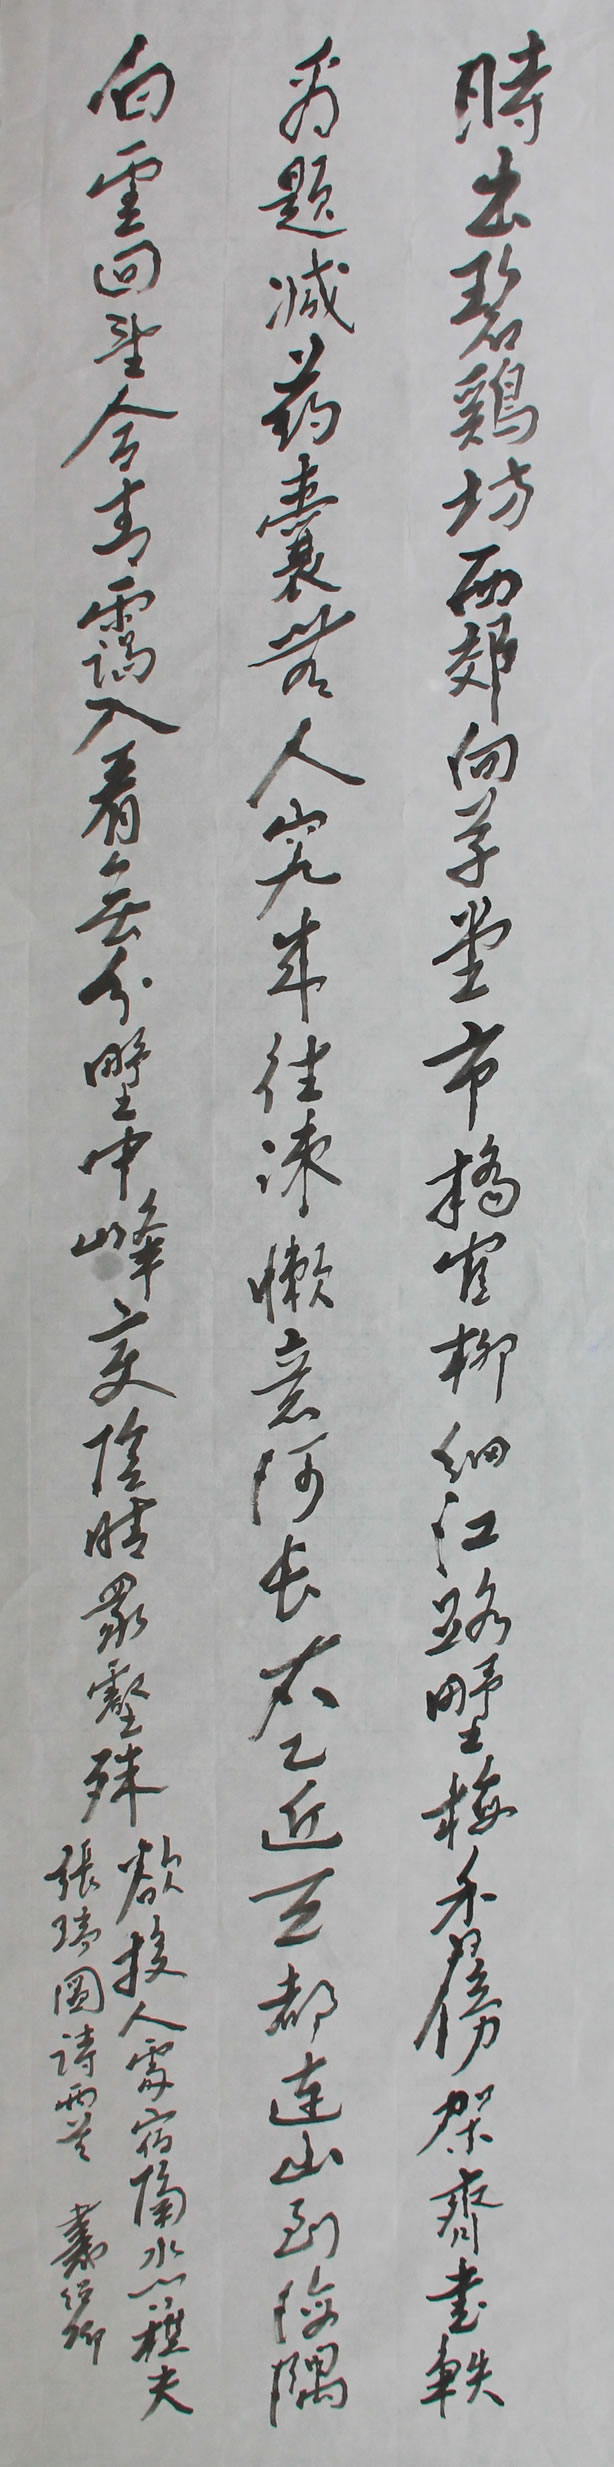 時出碧鷄坊西郊向草堂市橋官柳細江路野梅香傍架齊書軼
看題减药囊無人究来往疎懶意何長太乙近天都連山到海隅
白雲回望合青靄入看無分野中峰变陰晴衆壑殊
欲投人處宿隔水問樵夫
張瑞圖詩兩首